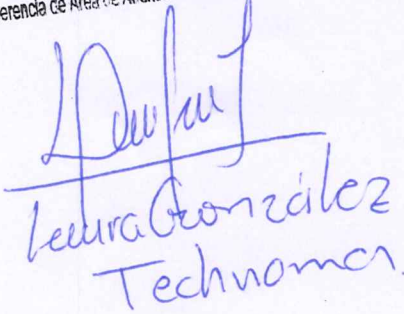 erencia de Área de
Laura González
Technoma